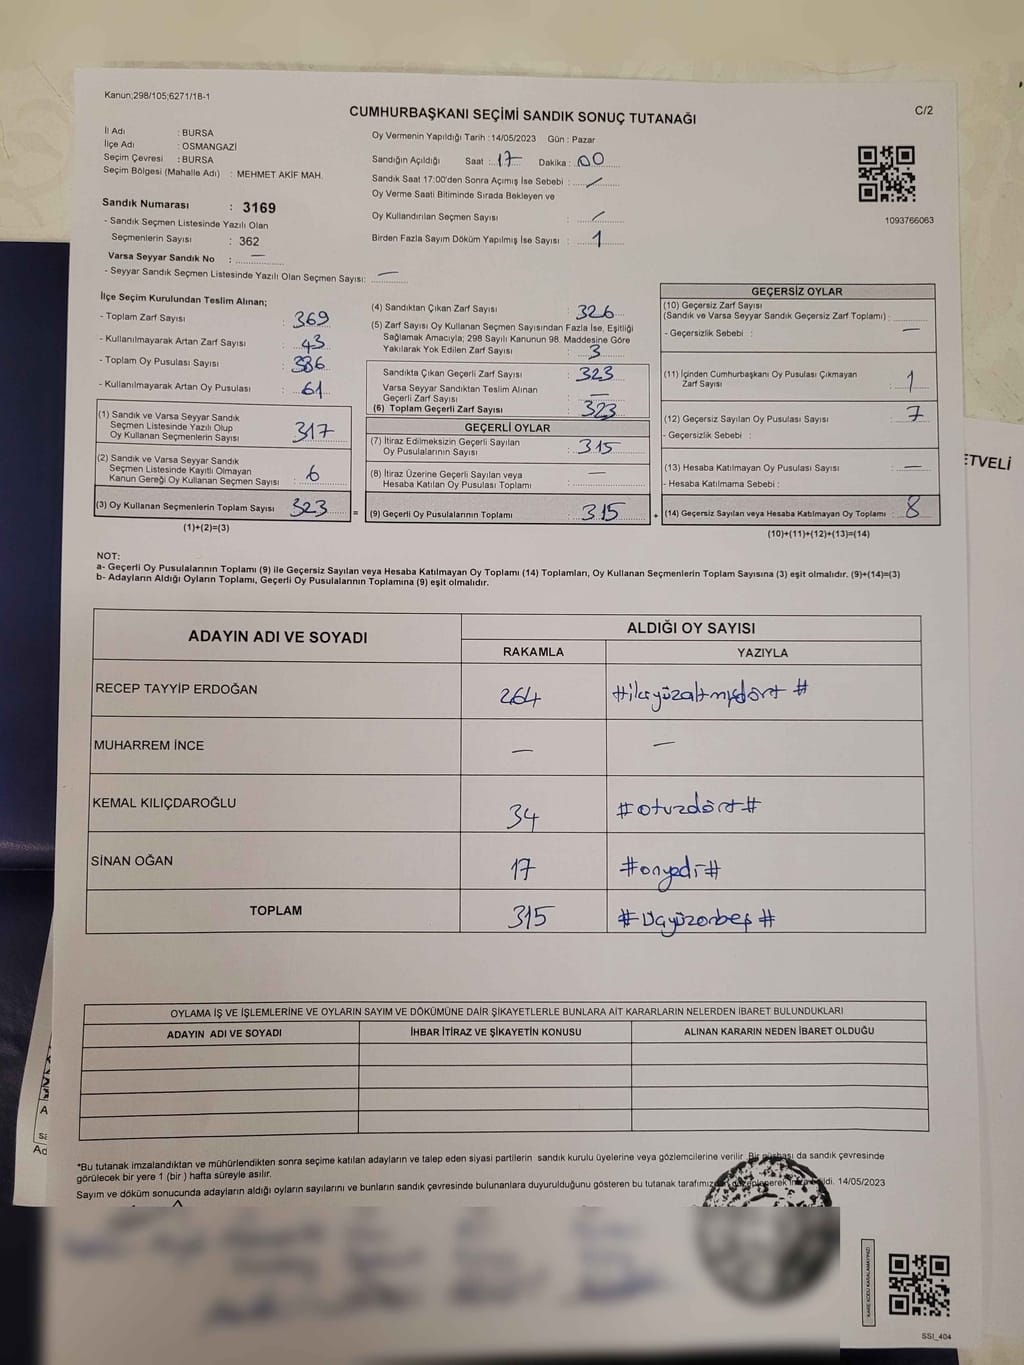 Kanun;298/105;6271/18-1
C/2
CUMHURBAŞKANI SEÇİMİ SANDIK SONUÇ TUTANAĞI
İl Adı : BURSA
İlçe Adı : OSMANGAZİ
Seçim Çevresi : BURSA
Seçim Bölgesi (Mahalle Adı) : MEHMET AKİF MAH.
Sandık Numarası : 3169
- Sandık Seçmen Listesinde Yazılı Olan
Seçmenlerin Sayısı : 362
Varsa Seyyar Sandık No : —
- Seyyar Sandık Seçmen Listesinde Yazılı Olan Seçmen Sayısı: —
Oy Vermenin Yapıldığı Tarih : 14/05/2023 Gün : Pazar
Sandığın Açıldığı Saat : 17 Dakika : 00
Sandık Saat 17:00'den Sonra Açımış İse Sebebi : /
Oy Verme Saati Bitiminde Sırada Bekleyen ve
Oy Kullandırılan Seçmen Sayısı : /
Birden Fazla Sayım Döküm Yapılmış İse Sayısı : 1
1093766063
İlçe Seçim Kurulundan Teslim Alınan;
- Toplam Zarf Sayısı : 369
- Kullanılmayarak Artan Zarf Sayısı : 43
- Toplam Oy Pusulası Sayısı : 386
- Kullanılmayarak Artan Oy Pusulası : 61
(1) Sandık ve Varsa Seyyar Sandık
Seçmen Listesinde Yazılı Olup
Oy Kullanan Seçmenlerin Sayısı : 317
(2) Sandık ve Varsa Seyyar Sandık
Seçmen Listesinde Kayıtlı Olmayan
Kanun Gereği Oy Kullanan Seçmen Sayısı : 6
(3) Oy Kullanan Seçmenlerin Toplam Sayısı : 323 =
(1)+(2)=(3)
(4) Sandıktan Çıkan Zarf Sayısı : 326
(5) Zarf Sayısı Oy Kullanan Seçmen Sayısından Fazla İse, Eşitliği
Sağlamak Amacıyla; 298 Sayılı Kanunun 98. Maddesine Göre
Yakılarak Yok Edilen Zarf Sayısı : 3
Sandıkta Çıkan Geçerli Zarf Sayısı : 323
Varsa Seyyar Sandıktan Teslim Alınan
Geçerli Zarf Sayısı : —
(6) Toplam Geçerli Zarf Sayısı : 323
GEÇERLİ OYLAR
(7) İtiraz Edilmeksizin Geçerli Sayılan
Oy Pusulalarının Sayısı : 315
(8) İtiraz Üzerine Geçerli Sayılan veya
Hesaba Katılan Oy Pusulası Toplamı : —
(9) Geçerli Oy Pusulalarının Toplamı : 315 +
GEÇERSİZ OYLAR
(10) Geçersiz Zarf Sayısı
(Sandık ve Varsa Seyyar Sandık Geçersiz Zarf Toplamı) :
- Geçersizlik Sebebi : —
(11) İçinden Cumhurbaşkanı Oy Pusulası Çıkmayan
Zarf Sayısı : 1
(12) Geçersiz Sayılan Oy Pusulası Sayısı : 7
- Geçersizlik Sebebi :
(13) Hesaba Katılmayan Oy Pusulası Sayısı : —
- Hesaba Katılmama Sebebi :
(14) Geçersiz Sayılan veya Hesaba Katılmayan Oy Toplamı : 8
(10)+(11)+(12)+(13)=(14)
NOT:
a- Geçerli Oy Pusulalarının Toplamı (9) ile Geçersiz Sayılan veya Hesaba Katılmayan Oy Toplamı (14) Toplamları, Oy Kullanan Seçmenlerin Toplam Sayısına (3) eşit olmalıdır. (9)+(14)=(3)
b- Adayların Aldığı Oyların Toplamı, Geçerli Oy Pusulalarının Toplamına (9) eşit olmalıdır.
ADAYIN ADI VE SOYADI ALDIĞI OY SAYISI
RAKAMLA YAZIYLA
RECEP TAYYİP ERDOĞAN 264 #ikiyüzaltmışdört#
MUHARREM İNCE — —
KEMAL KILIÇDAROĞLU 34 #otuzdört#
SİNAN OĞAN 17 #onyedi#
TOPLAM 315 #Üçyüzonbeş#
OYLAMA İŞ VE İŞLEMLERİNE VE OYLARIN SAYIM VE DÖKÜMÜNE DAİR ŞİKAYETLERLE BUNLARA AİT KARARLARIN NELERDEN İBARET BULUNDUKLARI
ADAYIN ADI VE SOYADI İHBAR İTİRAZ VE ŞİKAYETİN KONUSU ALINAN KARARIN NEDEN İBARET OLDUĞU
*Bu tutanak imzalandıktan ve mühürlendikten sonra seçime katılan adayların ve talep eden siyasi partilerin sandık kurulu üyelerine veya gözlemcilerine verilir. Bir nüshası da sandık çevresinde
görülecek bir yere 1 (bir ) hafta süreyle asılır.
Sayım ve döküm sonucunda adayların aldığı oyların sayılarını ve bunların sandık çevresinde bulunanlara duyurulduğunu gösteren bu tutanak tarafımızdan düzenlenerek 14/05/2023
KARE KODU KARALAMAYINIZ!
SSI_404
ETVELİ